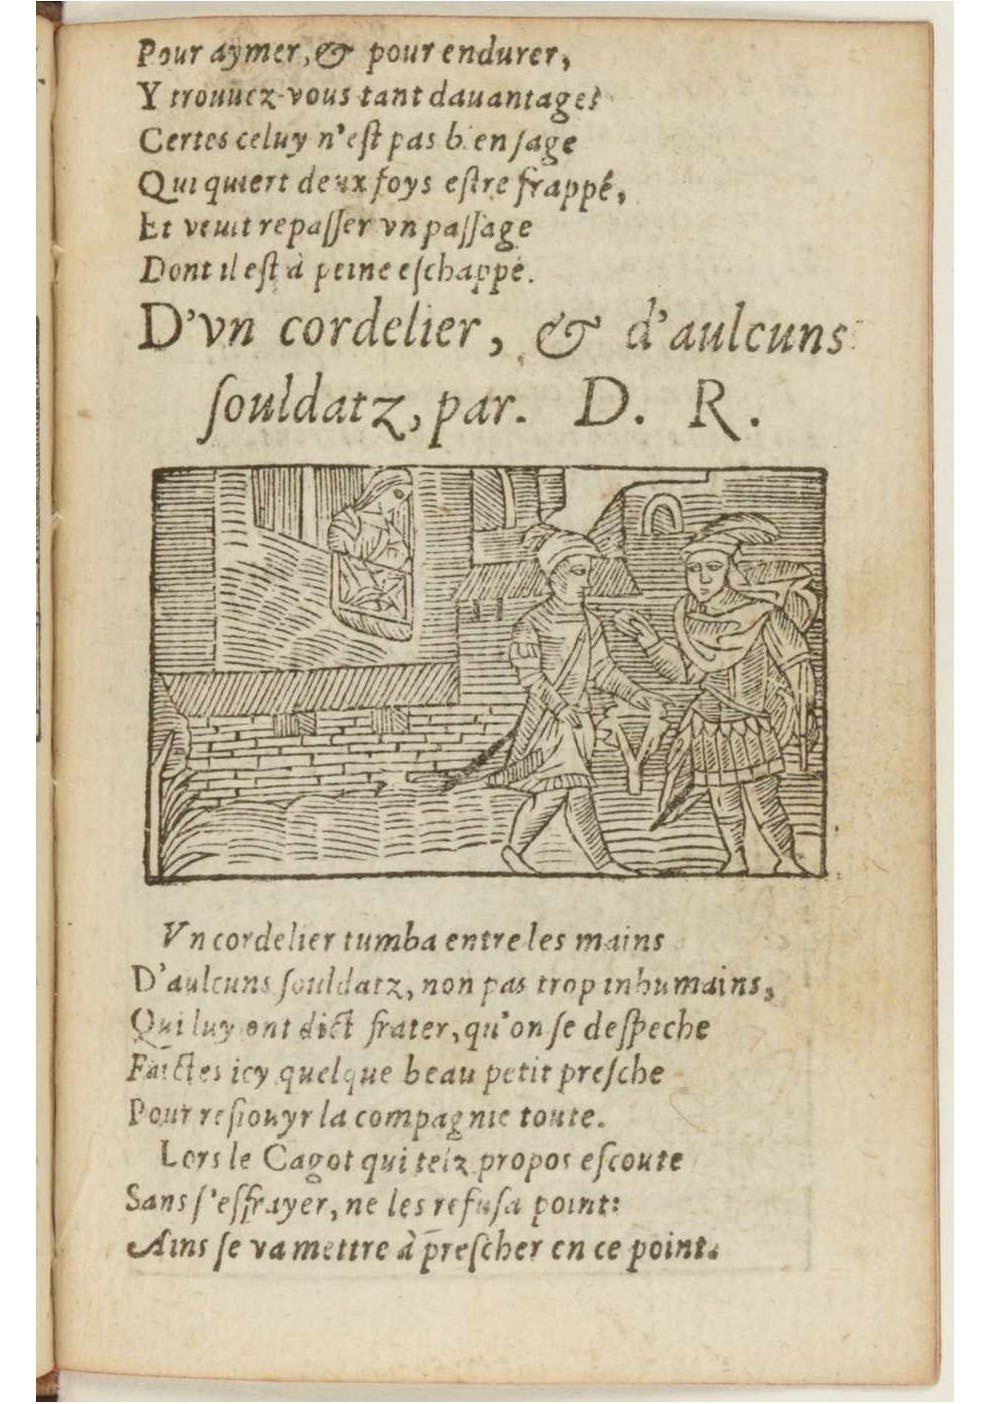 Pour aymer, & pour endurer,
Y trouuez-vous tant dauantage?
Certes celuy n'eſt pas bien ſage
Qui quiert deux foys eſtre frappé,
Et veult repaſſer vn paſſage
Dont il eſt à peine eſchappé.
D'vn cordelier, & d'aulcuns
ſouldatz, par. D. R.
Vn cordelier tumba entre les mains
D'aulcuns ſouldatz, non pas trop inhumains,
Qui luy ont dict frater, qu'on ſe deſpeche
Faictes icy quelque beau petit preſche
Pour reſiouyr la compagnie toute.
Lors le Cagot qui telz propos eſcoute
Sans ſ'effrayer, ne les refuſa point:
Ains ſe va mettre à preſcher en ce point.